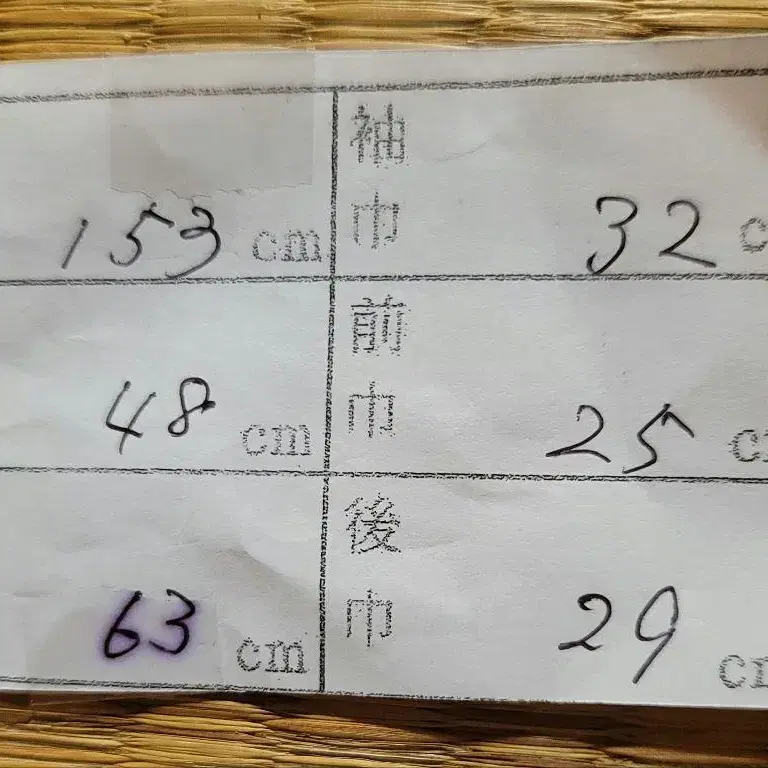 153 cm 袖巾 32 c
48 cm 前巾 25 c
63 cm 後巾 29 cm